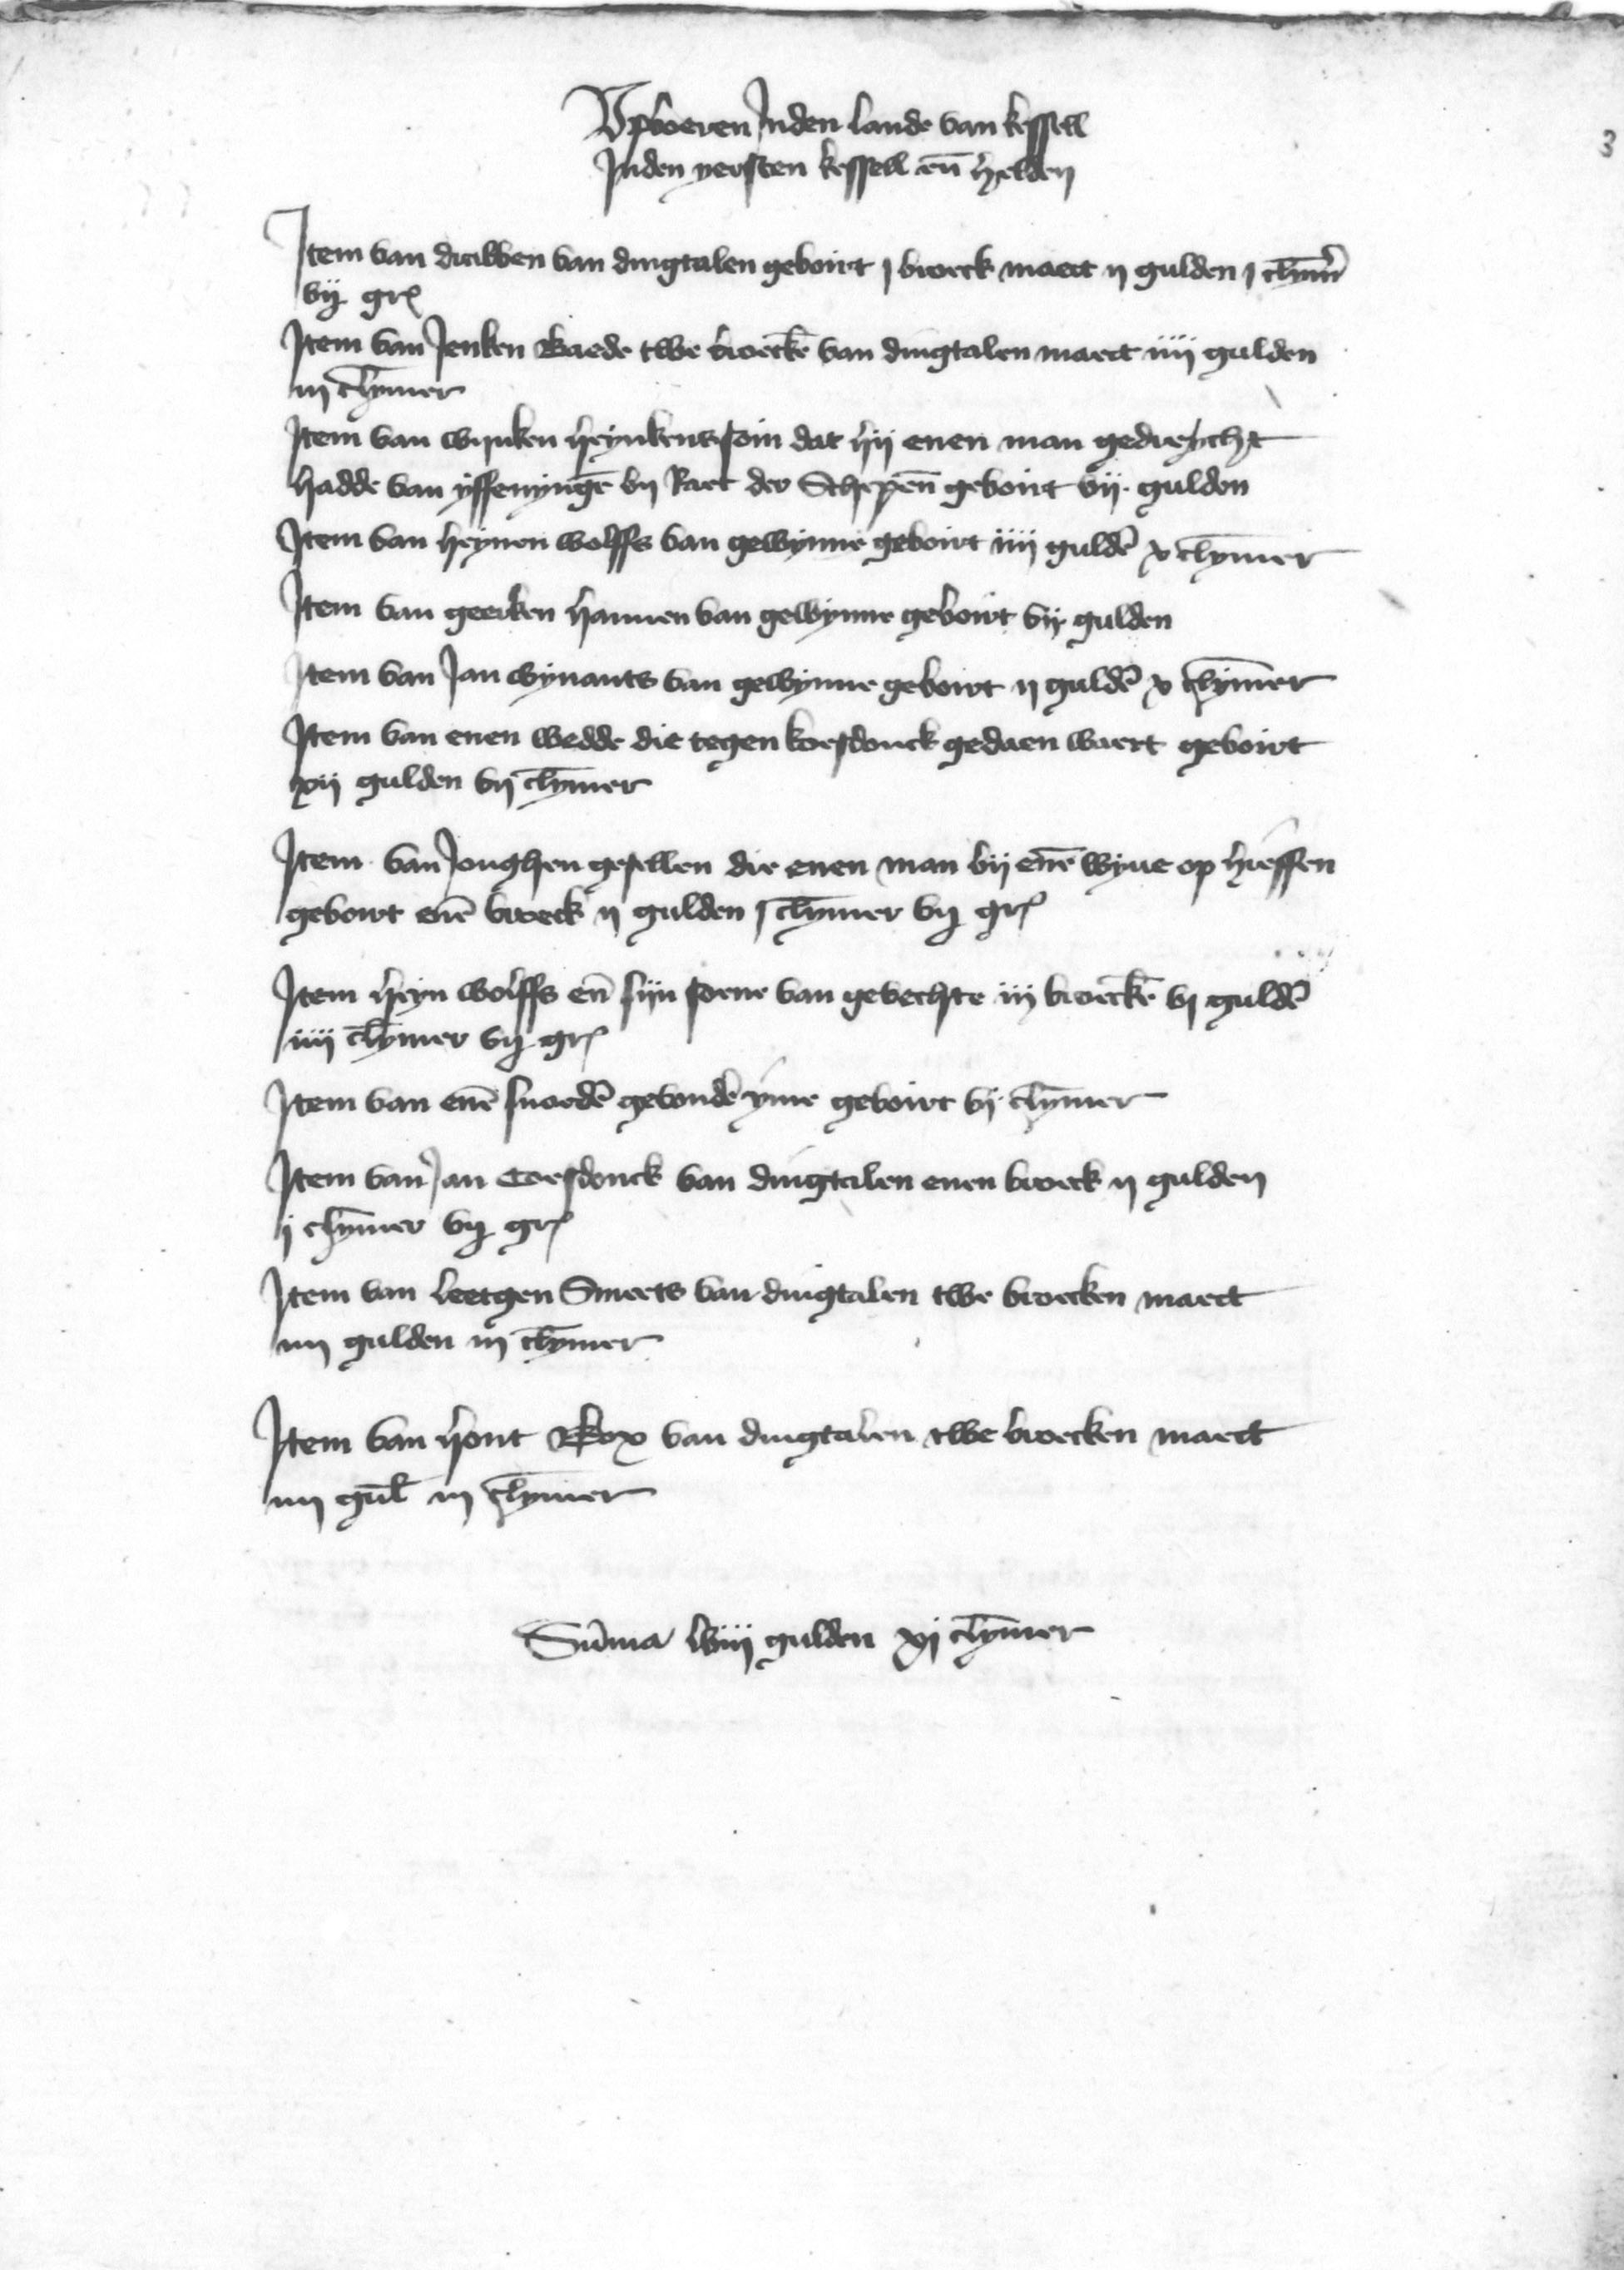 3
Upboeren Inden lande van kessell
Inden yersten kessell en̄ helden
Item van druwen van dingtalen geboirt j broeck maect ij gulden j clȳmer
vij gr
Item van Jenken Baede twe broecke̅ van dingtalen maect iiij gulden
iij clȳmer
Item van wynken heynkenssoin dat hij enen man gedreycht
hadde van ysseny̅nge by Raet der Schepen̄ geboirt vij gulden
Item van heynen wolffs van gewynne geboirt iiij gulde̅ x clȳmer
Item van geerken hannen van gewynne geboirt vij gulden
Item van Jan wynants van gewynne geboirt ij gulde̅ x clȳmer
Item van enen wedde die tegen koesdonck gedaen waert geboirt
xij gulden vij clȳmer
Item van Jonghen gesellen die enen man bij ene̅ wyue op hieffen
geboirt ene̅ broeck ij gulden j clȳmer vij gr
Item heyn wolffs en̄ sijn soene van gevechte iij broecke̅ vj gulde̅
iiij clȳmer vij gr
Item van ene̅ suorde̅ gevonde̅ yme geboirt vj clȳmer
Item van Jan Coesdonck van dingtalen enen broeck ij gulden
j clȳmer vij gr
Item van leetgen Smeets van dingtalen twe broecken maect
iiij gulden iij clȳmer
Item van hont Box van dingtalen twe broecken maect
iiij gul̄ iij clȳmer
Su̅ma lviij gulden xj clȳmer